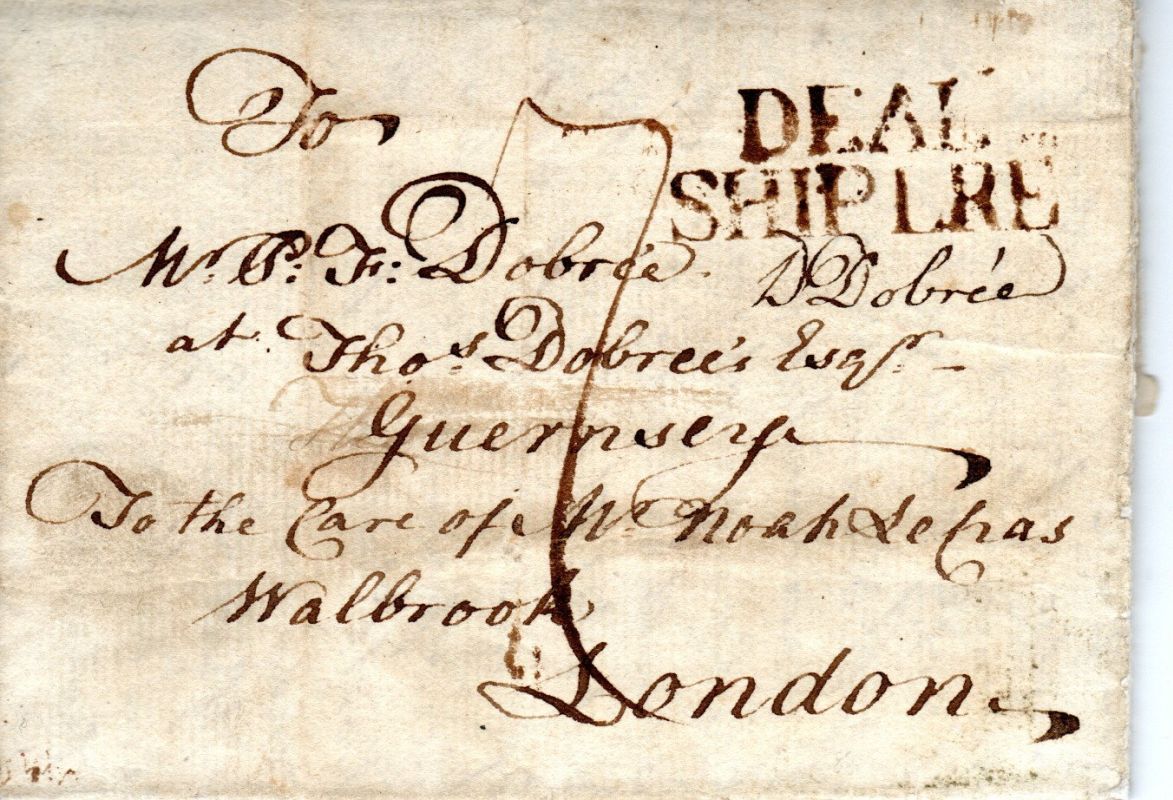 To
DEAL
SHIP LRE
Mr. P: F: Dobrée
D Dobrée
at Thos. Dobrée's Esqr.
Guernsey
To the Care of Mr. Noah Le Cras
Walbrook
London